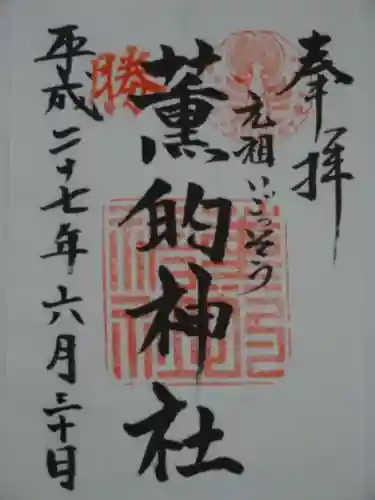 奉拝
元祖いごっそう
薫的神社
勝
平成二十七年六月三十日